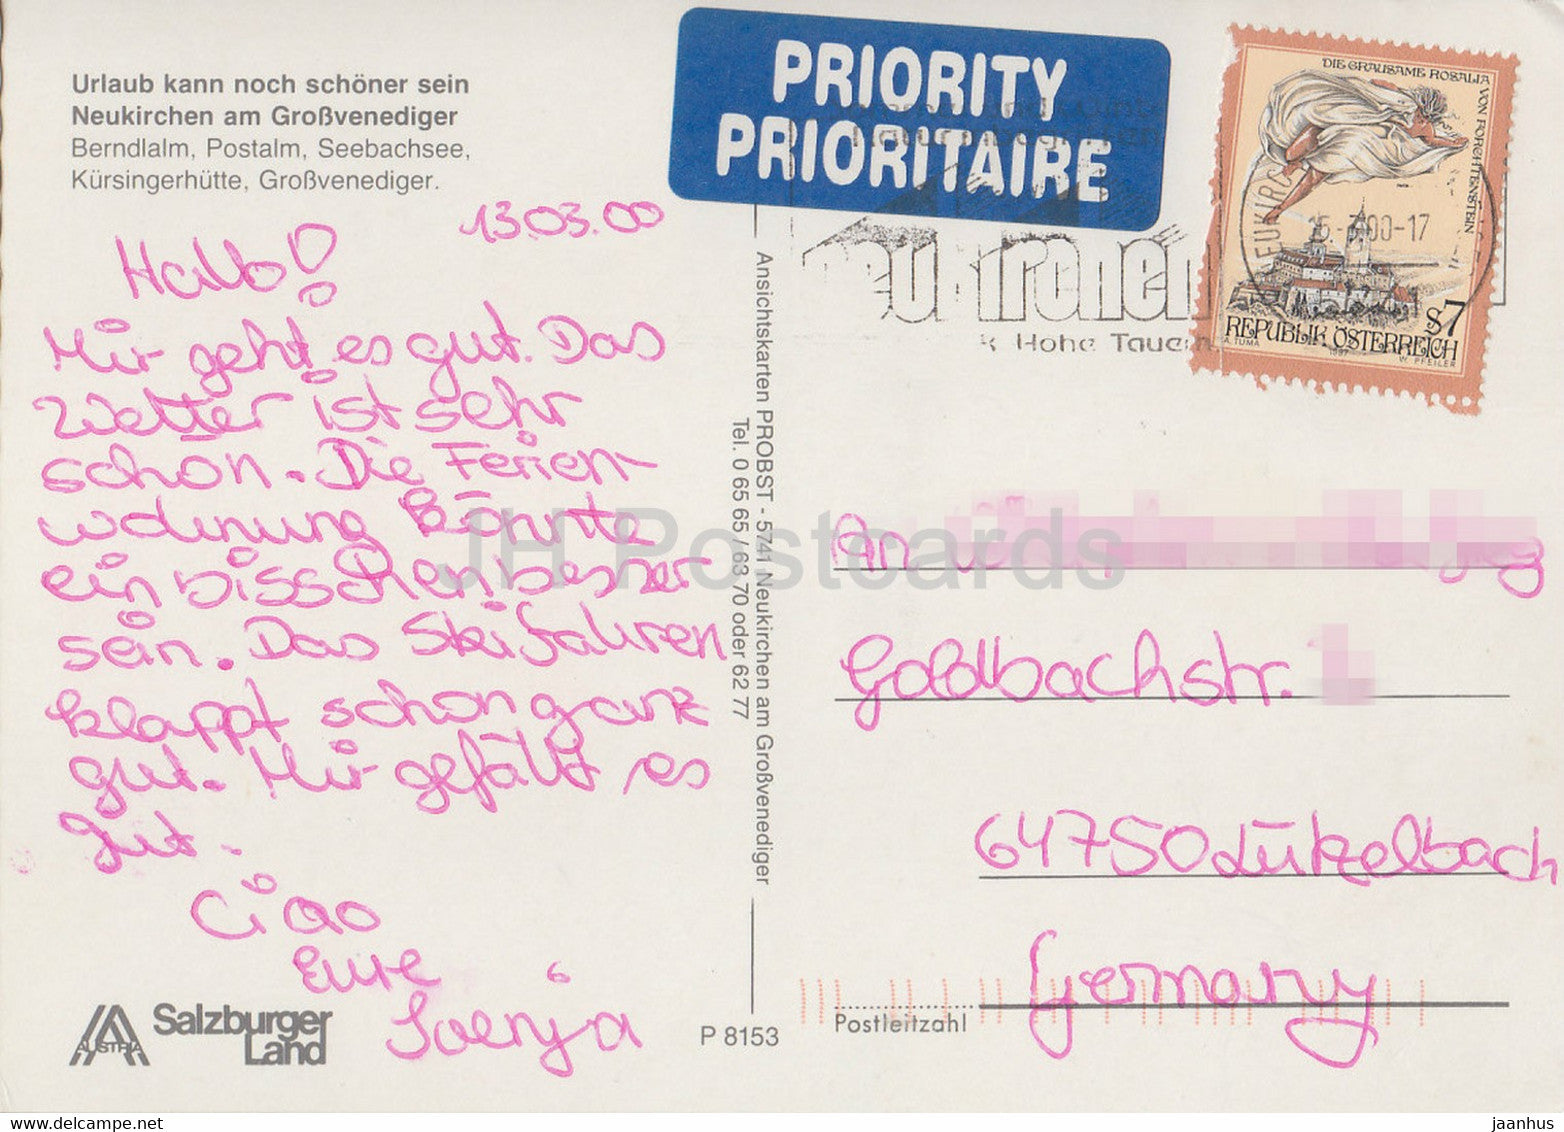 Urlaub kann noch schöner sein
Neukirchen am Großvenediger
Berndlalm, Postalm, Seebachsee,
Kürsingerhütte, Großvenediger.
13.03.00
Hallo!
Mir geht es gut. Das
Wetter ist sehr
schön. Die Ferien-
wohnung könnte
ein bisschen besser
sein. Das Skifahren
klappt schon ganz
gut. Mir gefällt es
gut.
Ciao
Eure
Svenja
AUSTRIA
Salzburger
Land
P 8153
Ansichtskarten PROBST - 5741 Neukirchen am Großvenediger
Tel. 0 65 65 / 63 70 oder 62 77
PRIORITY
PRIORITAIRE
Neukirchen
Hohe Tauern
NEUKIRC
15-3.00-17
DIE GRAUSAME ROSALIA VON FORCHTENSTEIN
S7
REPUBLIK ÖSTERREICH
A. TUMA 1997 W. PFEILER
An
Goldbachstr.
64750 Lützelbach
Germany
Postleitzahl
JH Postcards
jaanhus